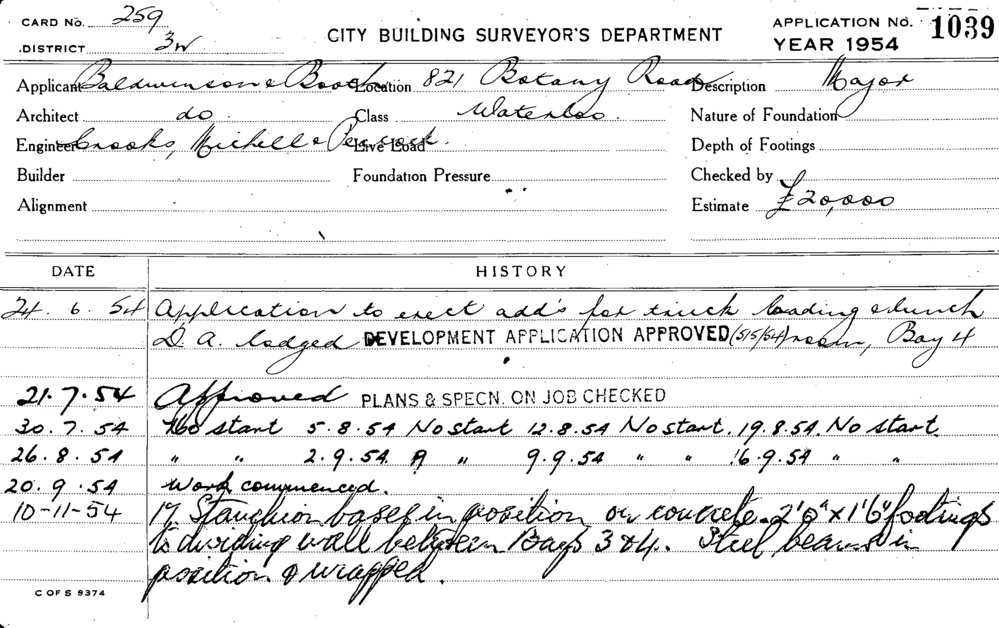 CARD No. 259
DISTRICT 3W
CITY BUILDING SURVEYOR'S DEPARTMENT
APPLICATION No. 1039
YEAR 1954
Applicant Baldwinson & Booth Location 821 Botany Road Description Major
Architect do Class Waterloo Nature of Foundation
Engineer Crooks, Michell & Peacock. Live Load Depth of Footings
Builder Foundation Pressure Checked by
Alignment Estimate £20,000
DATE HISTORY
24. 6. 54 Application to erect add's for truck loading & lunch
D. A. lodged DEVELOPMENT APPLICATION APPROVED (5/5/54) room, Bay 4
21.7.54 Approved PLANS & SPECN. ON JOB CHECKED
30.7.54 No start 5.8.54 No start 12.8.54 No start. 19.8.54. No start.
26.8.54 " " 2.9.54. " " 9.9.54 " " 16.9.54 " "
20.9.54 Work commenced.
10-11-54 17 Stanchion bases in position on concrete 2'6" x 1'6" footings
to dividing wall between Bays 3 & 4. Steel beams in
position & wrapped.
C OF S 9374